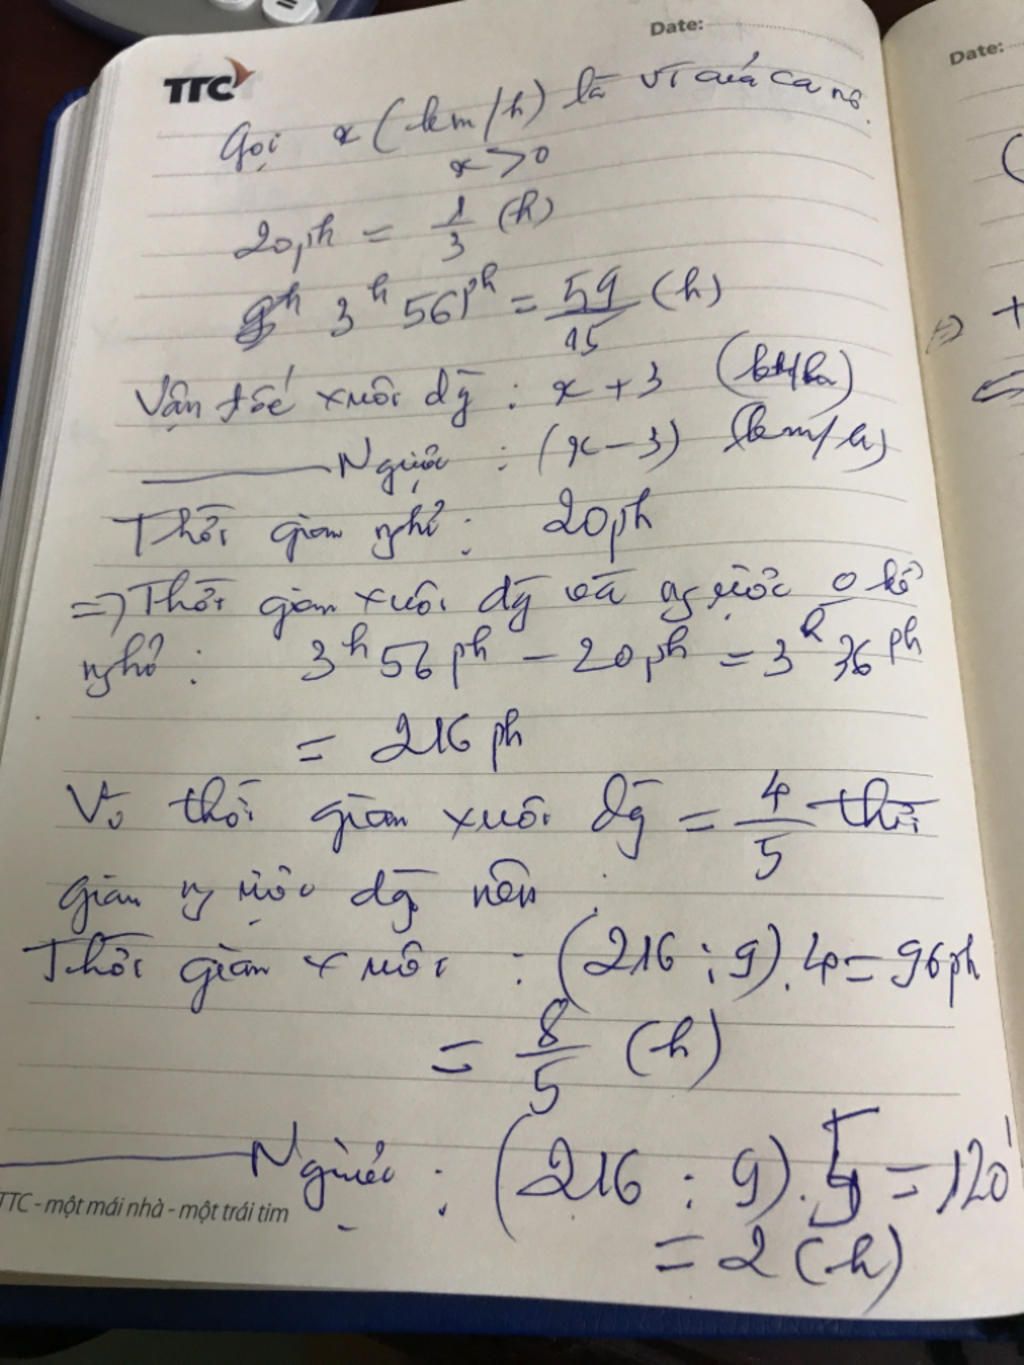 Date:
TTC
Gọi x (km/h) là VT của ca nô.
x > 0
20ph = 1/3 (h)
3h 56ph = 59/15 (h)
Vận tốc xuôi dg̀ : x + 3 (km/h)
Ngược : (x - 3) (km/h)
Thời gian nghỉ : 20ph
=> Thời gian xuôi dg̀ và ngược o kể
nghỉ : 3h 56ph - 20ph = 3h 36ph
= 216 ph
Vì thời gian xuôi dg̀ = 4/5 thời
gian ngược dg̀ nên :
Thời gian xuôi : (216 : 9) . 4 = 96ph
= 8/5 (h)
Ngược : (216 : 9) . 5 = 120'
TTC - một mái nhà - một trái tim
= 2 (h)
Date:
(
=> +